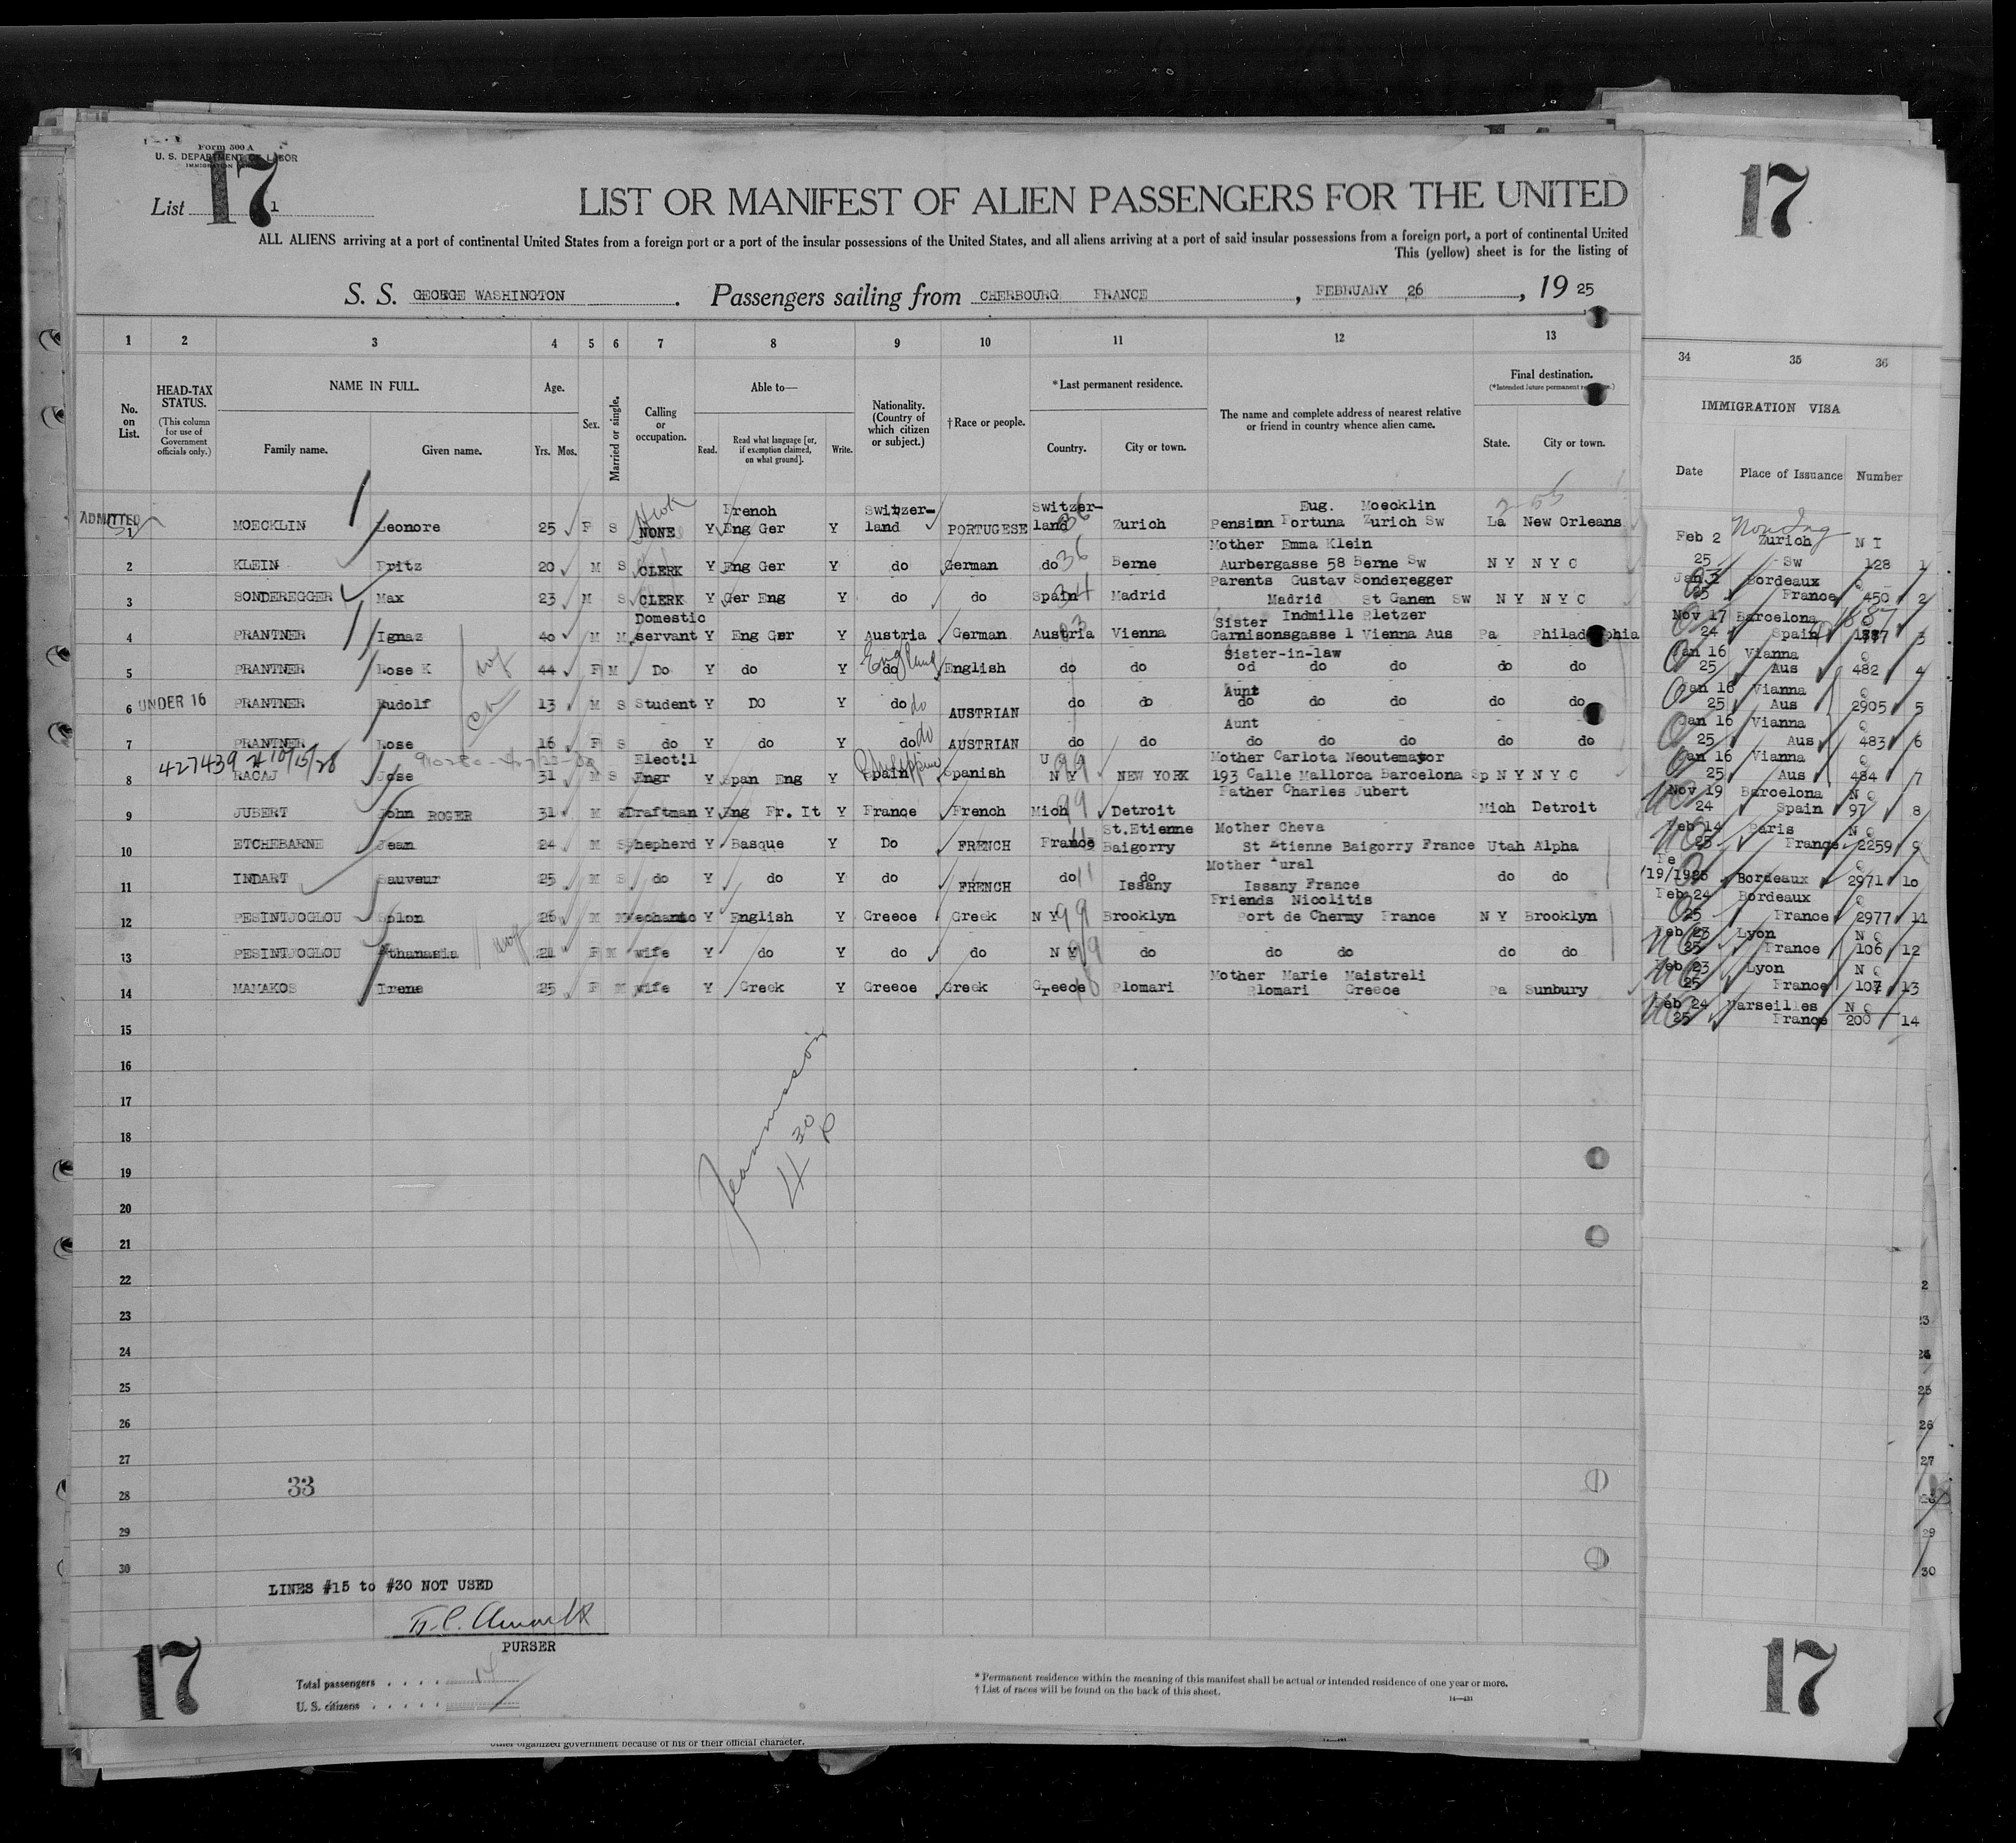 Form 500 A
U. S. DEPARTMENT OF LABOR
17
List 1
LIST OR MANIFEST OF ALIEN PASSENGERS FOR THE UNITED
ALL ALIENS arriving at a port of continental United States from a foreign port or a port of the insular possessions of the United States, and all aliens arriving at a port of said insular possessions from a foreign port, a port of continental United
This (yellow) sheet is for the listing of
S. S. GEORGE WASHINGTON . Passengers sailing from CHERBOURG FRANCE , FEBRUARY 26 , 19 25
17
1 2 3 4 5 6 7 8 9 10 11 12 13 34 35 36
No. on List. HEAD-TAX STATUS. (This column for use of Government officials only.) NAME IN FULL. Family name. Given name. Age. Yrs. Mos. Sex. Married or single. Calling or occupation. Able to— Read. Read what language [or, if exemption claimed, on what ground]. Write. Nationality. (Country of which citizen or subject.) †Race or people. *Last permanent residence. Country. City or town. The name and complete address of nearest relative or friend in country whence alien came. Final destination. (*Intended future permanent State. City or town.
IMMIGRATION VISA
Date Place of Issuance Number
ADMITTED
1 MOECKLIN Leonore 25 F S NONE Y French Eng Ger Y Switzer-land PORTUGESE Switzer-land 36 Zurich Eug. Moecklin Pension Fortuna Zurich Sw La New Orleans
2 KLEIN Fritz 20 M S CLERK Y Eng Ger Y do German do 36 Berne Mother Emma Klein Aurbergasse 58 Berne Sw N Y N Y C
3 SONDEREGGER Max 23 M S CLERK Y Ger Eng Y do do Spain 34 Madrid Parents Gustav Sonderegger Madrid St Ganen Sw N Y N Y C
4 PRANTNER Ignaz 40 M M Domestic servant Y Eng Ger Y Austria German Austria Vienna Sister Indmille Pletzer Garnisonsgasse 1 Vienna Aus Pa Philadelphia
5 PRANTNER Rose K 44 F M Do Y do Y do England English do do Sister-in-law od do do do do
6 UNDER 16 PRANTNER Rudolf 13 M S Student Y DO Y do do AUSTRIAN do do Aunt do do do do do
7 PRANTNER Rose 16 F S do Y do Y do do AUSTRIAN do do Aunt do do do do do
427439 10/15/28
8 RACAJ Jose 31 M S Elect'l Engr Y Span Eng Y Spain Spanish U S A N Y 99 NEW YORK Mother Carlota Neoutemayor 193 Calle Mallorca Barcelona Sp N Y N Y C
9 JUBERT John ROGER 31 M Draftman Y Eng Fr. It Y France French Mich 99 Detroit Father Charles Jubert Mich Detroit
10 ETCHEBARNE Jean 24 M S Shepherd Y Basque Y Do FRENCH France 11 St.Etienne Baigorry Mother Cheva St Etienne Baigorry France Utah Alpha
11 INDART Sauveur 25 M S do Y do Y do FRENCH do 11 do Issany Mother Issany France do do
12 PESINTJOGLOU Solon 26 M M Mechanic Y English Y Greece Greek N Y 99 Brooklyn Friends Nicolitis Port de Chermy France N Y Brooklyn
13 PESINTJOGLOU Athanasia 21 F M wife Y do Y do do N Y 99 do do do do do
14 MAMAKOS Irene 25 F M wife Y Greek Y Greece Greek Greece Plomari Mother Marie Maistreli Plomari Greece Pa Sunbury
Feb 2 25 Zurich Sw N I 128 1
Jan 2 25 Bordeaux France 450 2
Nov 17 24 Barcelona Spain 3
Jan 16 25 Vianna Aus Q 482 4
Jan 16 25 Vianna Aus Q 2905 5
Jan 16 25 Vianna Aus Q 483 6
Jan 16 25 Vianna Aus Q 484 7
Nov 19 24 Barcelona Spain N Q 97 8
Feb 14 25 Paris France N Q 2259 9
Fe 19/1925 Bordeaux Q 2971 10
Feb 24 25 Bordeaux France Q 2977 11
Feb 23 25 Lyon France N Q 106 12
Feb 23 25 Lyon France N Q 107 13
Feb 24 25 Marseilles France N Q 200 14
15
16
17
18
19
20
21
22
23
24
25
26
27
28
29
30
4 30 P
33
2
23
24
25
26
27
28
29
30
LINES #15 to #30 NOT USED
PURSER
17
Total passengers . . . . 14
U. S. citizens . . . . .
* Permanent residence within the meaning of this manifest shall be actual or intended residence of one year or more.
† List of races will be found on the back of this sheet.
14—431
17
other organized government because of his or their official character.